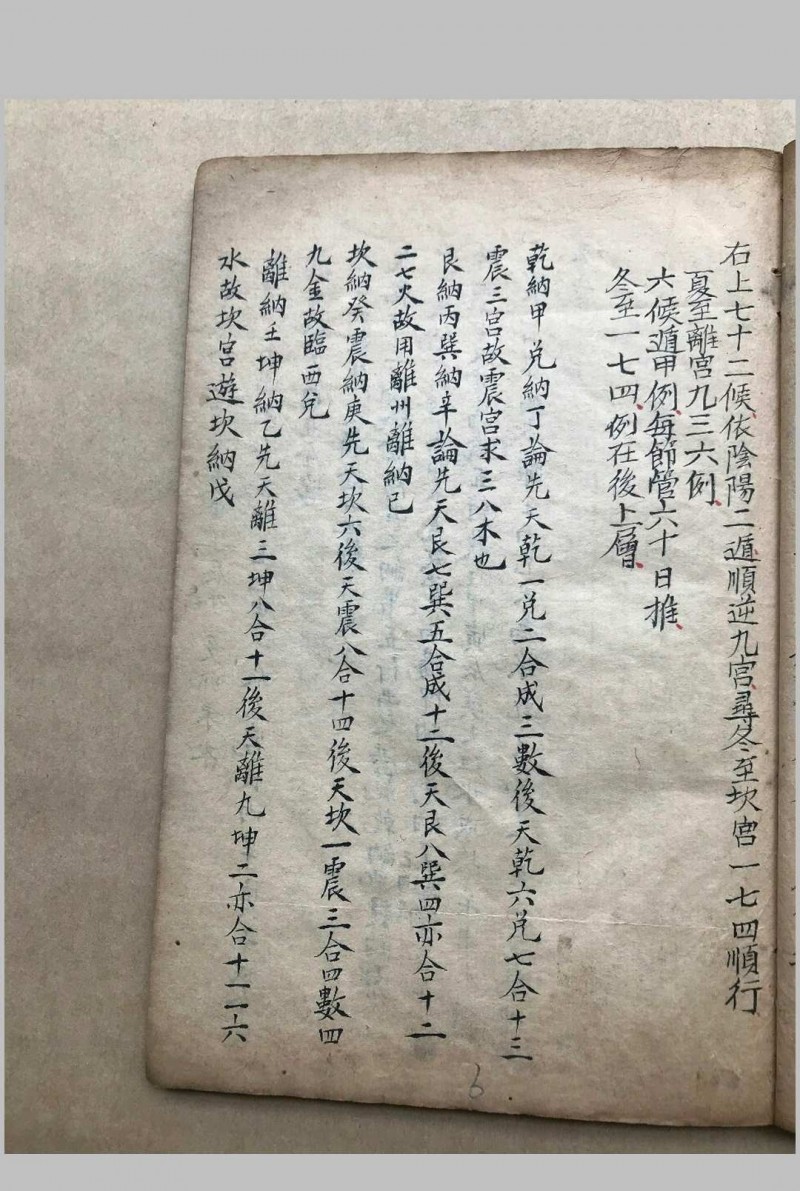 右上七十二候依陰陽二遁順逆九宮尋冬至坎宮一七四順行
夏至離宮九三六例
六候遁甲例每節管六十日推
冬至一七四例在後上層
乾納甲兌納丁論先天乾一兌二合成三數後天乾六兌七合十三
震三宮故震宮求三八木也
艮納丙巽納辛論先天艮七巽五合成十二後天艮八巽四亦合十二
二七火故用離州離納已
坎納癸震納庚先天坎六後天震八合十四後天坎一震三合四數四
九金故臨西兌
離納壬坤納乙先天離三坤八合十一後天離九坤二亦合十一一六
水故坎宮遊坎納戊
6